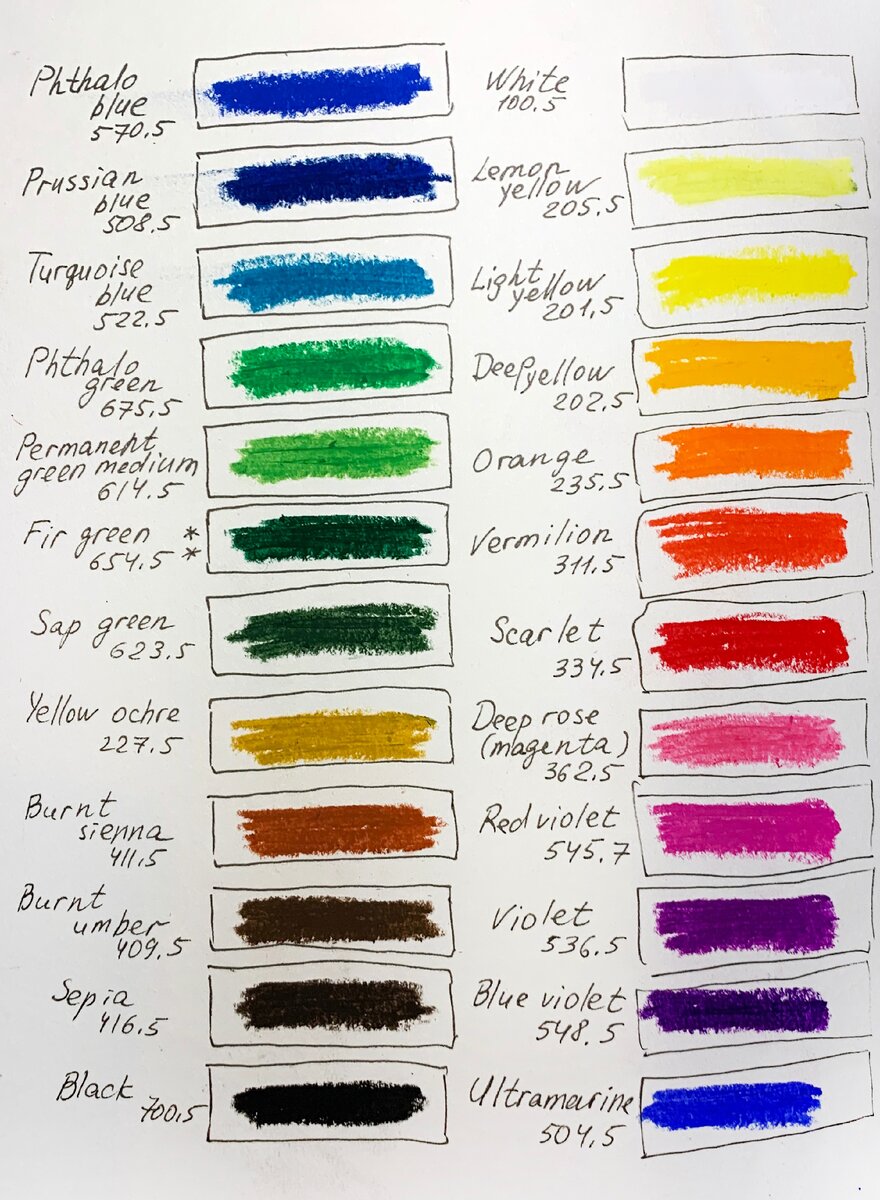 Phthalo
blue
570.5
Prussian
blue
508.5
Turquoise
blue
522.5
Phthalo
green
675.5
Permanent
green medium
614.5
Fir green *
654.5 *
Sap green
623.5
Yellow ochre
227.5
Burnt
sienna
411.5
Burnt
umber
409.5
Sepia
416.5
Black
700.5
White
100.5
Lemon
yellow
205.5
Light
yellow
201.5
Deep yellow
202.5
Orange
235.5
Vermilion
311.5
Scarlet
334.5
Deep rose
(magenta)
362.5
Red violet
545.7
Violet
536.5
Blue violet
548.5
Ultramarine
504.5